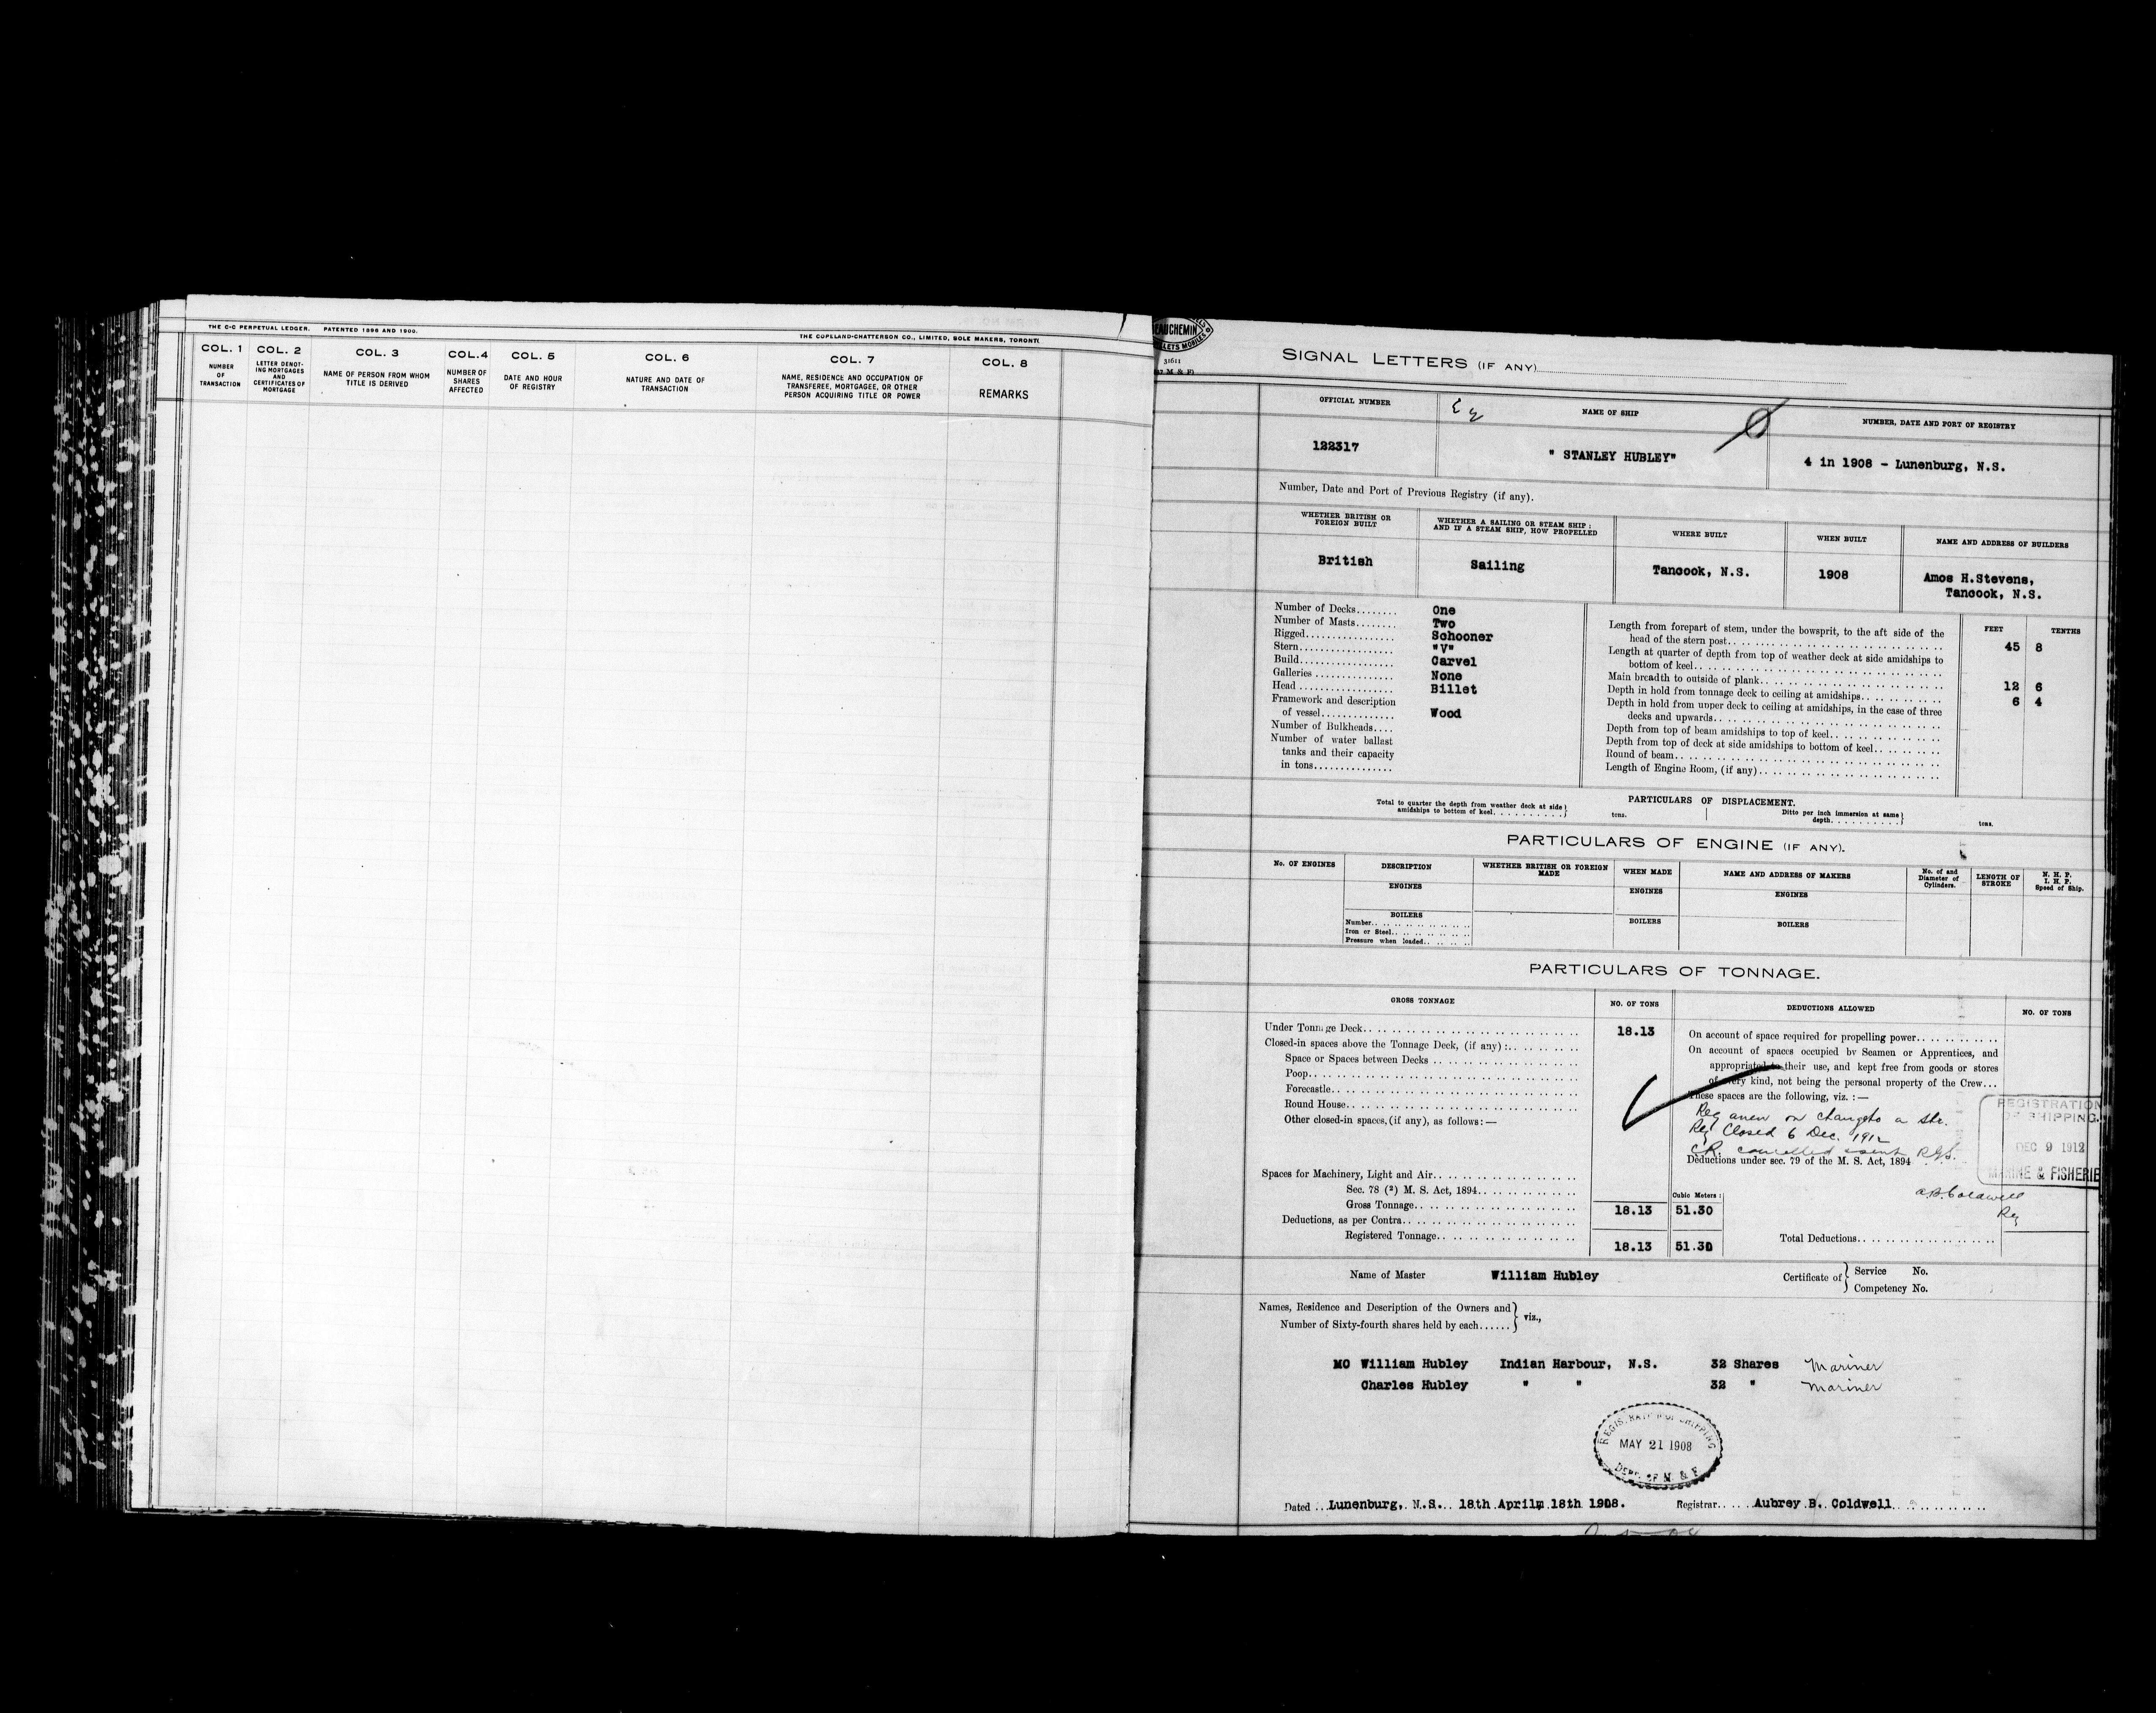 THE C-C PERPETUAL LEDGER. PATENTED 1896 AND 1900.
THE COPELAND-CHATTERSON CO., LIMITED, SOLE MAKERS, TORONT
COL. 1
NUMBER
OF
TRANSACTION
COL. 2
LETTER DENOT-
ING MORTGAGES
AND
CERTIFICATES OF
MORTGAGE
COL. 3
NAME OF PERSON FROM WHOM
TITLE IS DERIVED
COL. 4
NUMBER OF
SHARES
AFFECTED
COL. 5
DATE AND HOUR
OF REGISTRY
COL. 6
NATURE AND DATE OF
TRANSACTION
COL. 7
NAME, RESIDENCE AND OCCUPATION OF
TRANSFEREE, MORTGAGEE, OR OTHER
PERSON ACQUIRING TITLE OR POWER
COL. 8
REMARKS
EAUCHEMIN
LLETS MOBILES
31611
M & F)
SIGNAL LETTERS (IF ANY)
OFFICIAL NUMBER
122317
NAME OF SHIP
" STANLEY HUBLEY"
NUMBER, DATE AND PORT OF REGISTRY
4 in 1908 - Lunenburg, N.S.
Number, Date and Port of Previous Registry (if any).
WHETHER BRITISH OR
FOREIGN BUILT
British
WHETHER A SAILING OR STEAM SHIP :
AND IF A STEAM SHIP, HOW PROPELLED
Sailing
WHERE BUILT
Tancook, N.S.
WHEN BUILT
1908
NAME AND ADDRESS OF BUILDERS
Amos H.Stevens,
Tancook, N.S.
Number of Decks........ One
Number of Masts........ Two
Rigged................. Schooner
Stern.................. "V"
Build.................. Carvel
Galleries ............... None
Head .................. Billet
Framework and description
of vessel.............. Wood
Number of Bulkheads....
Number of water ballast
tanks and their capacity
in tons...............
FEET TENTHS
Length from forepart of stem, under the bowsprit, to the aft side of the
head of the stern post.............. 45 8
Length at quarter of depth from top of weather deck at side amidships to
bottom of keel..............
Main breadth to outside of plank.............. 12 6
Depth in hold from tonnage deck to ceiling at amidships.............. 6 4
Depth in hold from upper deck to ceiling at amidships, in the case of three
decks and upwards..............
Depth from top of beam amidships to top of keel..............
Depth from top of deck at side amidships to bottom of keel..............
Round of beam..............
Length of Engine Room, (if any)..............
PARTICULARS OF DISPLACEMENT.
Total to quarter the depth from weather deck at side
amidships to bottom of keel.......... } tons.
Ditto per inch immersion at same
depth.......... } tons.
PARTICULARS OF ENGINE (IF ANY).
No. OF ENGINES
DESCRIPTION
ENGINES
BOILERS
Number..............
Iron or Steel..............
Pressure when loaded..........
WHETHER BRITISH OR FOREIGN
MADE
WHEN MADE
ENGINES
BOILERS
NAME AND ADDRESS OF MAKERS
ENGINES
BOILERS
No. of and
Diameter of
Cylinders.
LENGTH OF
STROKE
N. H. P.
I. H. P.
Speed of Ship.
PARTICULARS OF TONNAGE.
GROSS TONNAGE
NO. OF TONS
Under Tonnage Deck.............. 18.13
Closed-in spaces above the Tonnage Deck, (if any) :..........
Space or Spaces between Decks ..............
Poop..............
Forecastle..............
Round House..............
Other closed-in spaces, (if any), as follows: —
Spaces for Machinery, Light and Air..............
Sec. 78 (2) M. S. Act, 1894..............
Cubic Meters :
Gross Tonnage.............. 18.13 51.30
Deductions, as per Contra..............
Registered Tonnage.............. 18.13 51.30
DEDUCTIONS ALLOWED
NO. OF TONS
On account of space required for propelling power............
On account of spaces occupied by Seamen or Apprentices, and
appropriated to their use, and kept free from goods or stores
of every kind, not being the personal property of the Crew...
These spaces are the following, viz. : —
Reg anew on change to a Str.
Reg Closed 6 Dec. 1912
CR. cancelled & sent RGS.
Deductions under sec. 79 of the M. S. Act, 1894
REGISTRATION
OF SHIPPING.
DEC 9 1912
MARINE & FISHERIE
A.B. Coldwell
Reg
Total Deductions..............
Name of Master William Hubley
Certificate of { Service No.
Competency No.
Names, Residence and Description of the Owners and
Number of Sixty-fourth shares held by each...... } viz.,
MO William Hubley Indian Harbour, N.S. 32 Shares Mariner
Charles Hubley " " 32 " Mariner
REGISTRATION OF SHIPPING
MAY 21 1908
DEPT. OF M. & F.
Dated .. Lunenburg, N.S.. 18th April, 18th 1908. Registrar...... Aubrey B. Coldwell